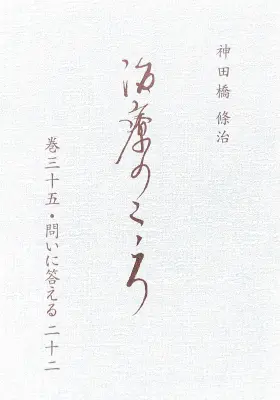 神田橋 條治
治療のこゝろ
巻三十五・問いに答える 二十二